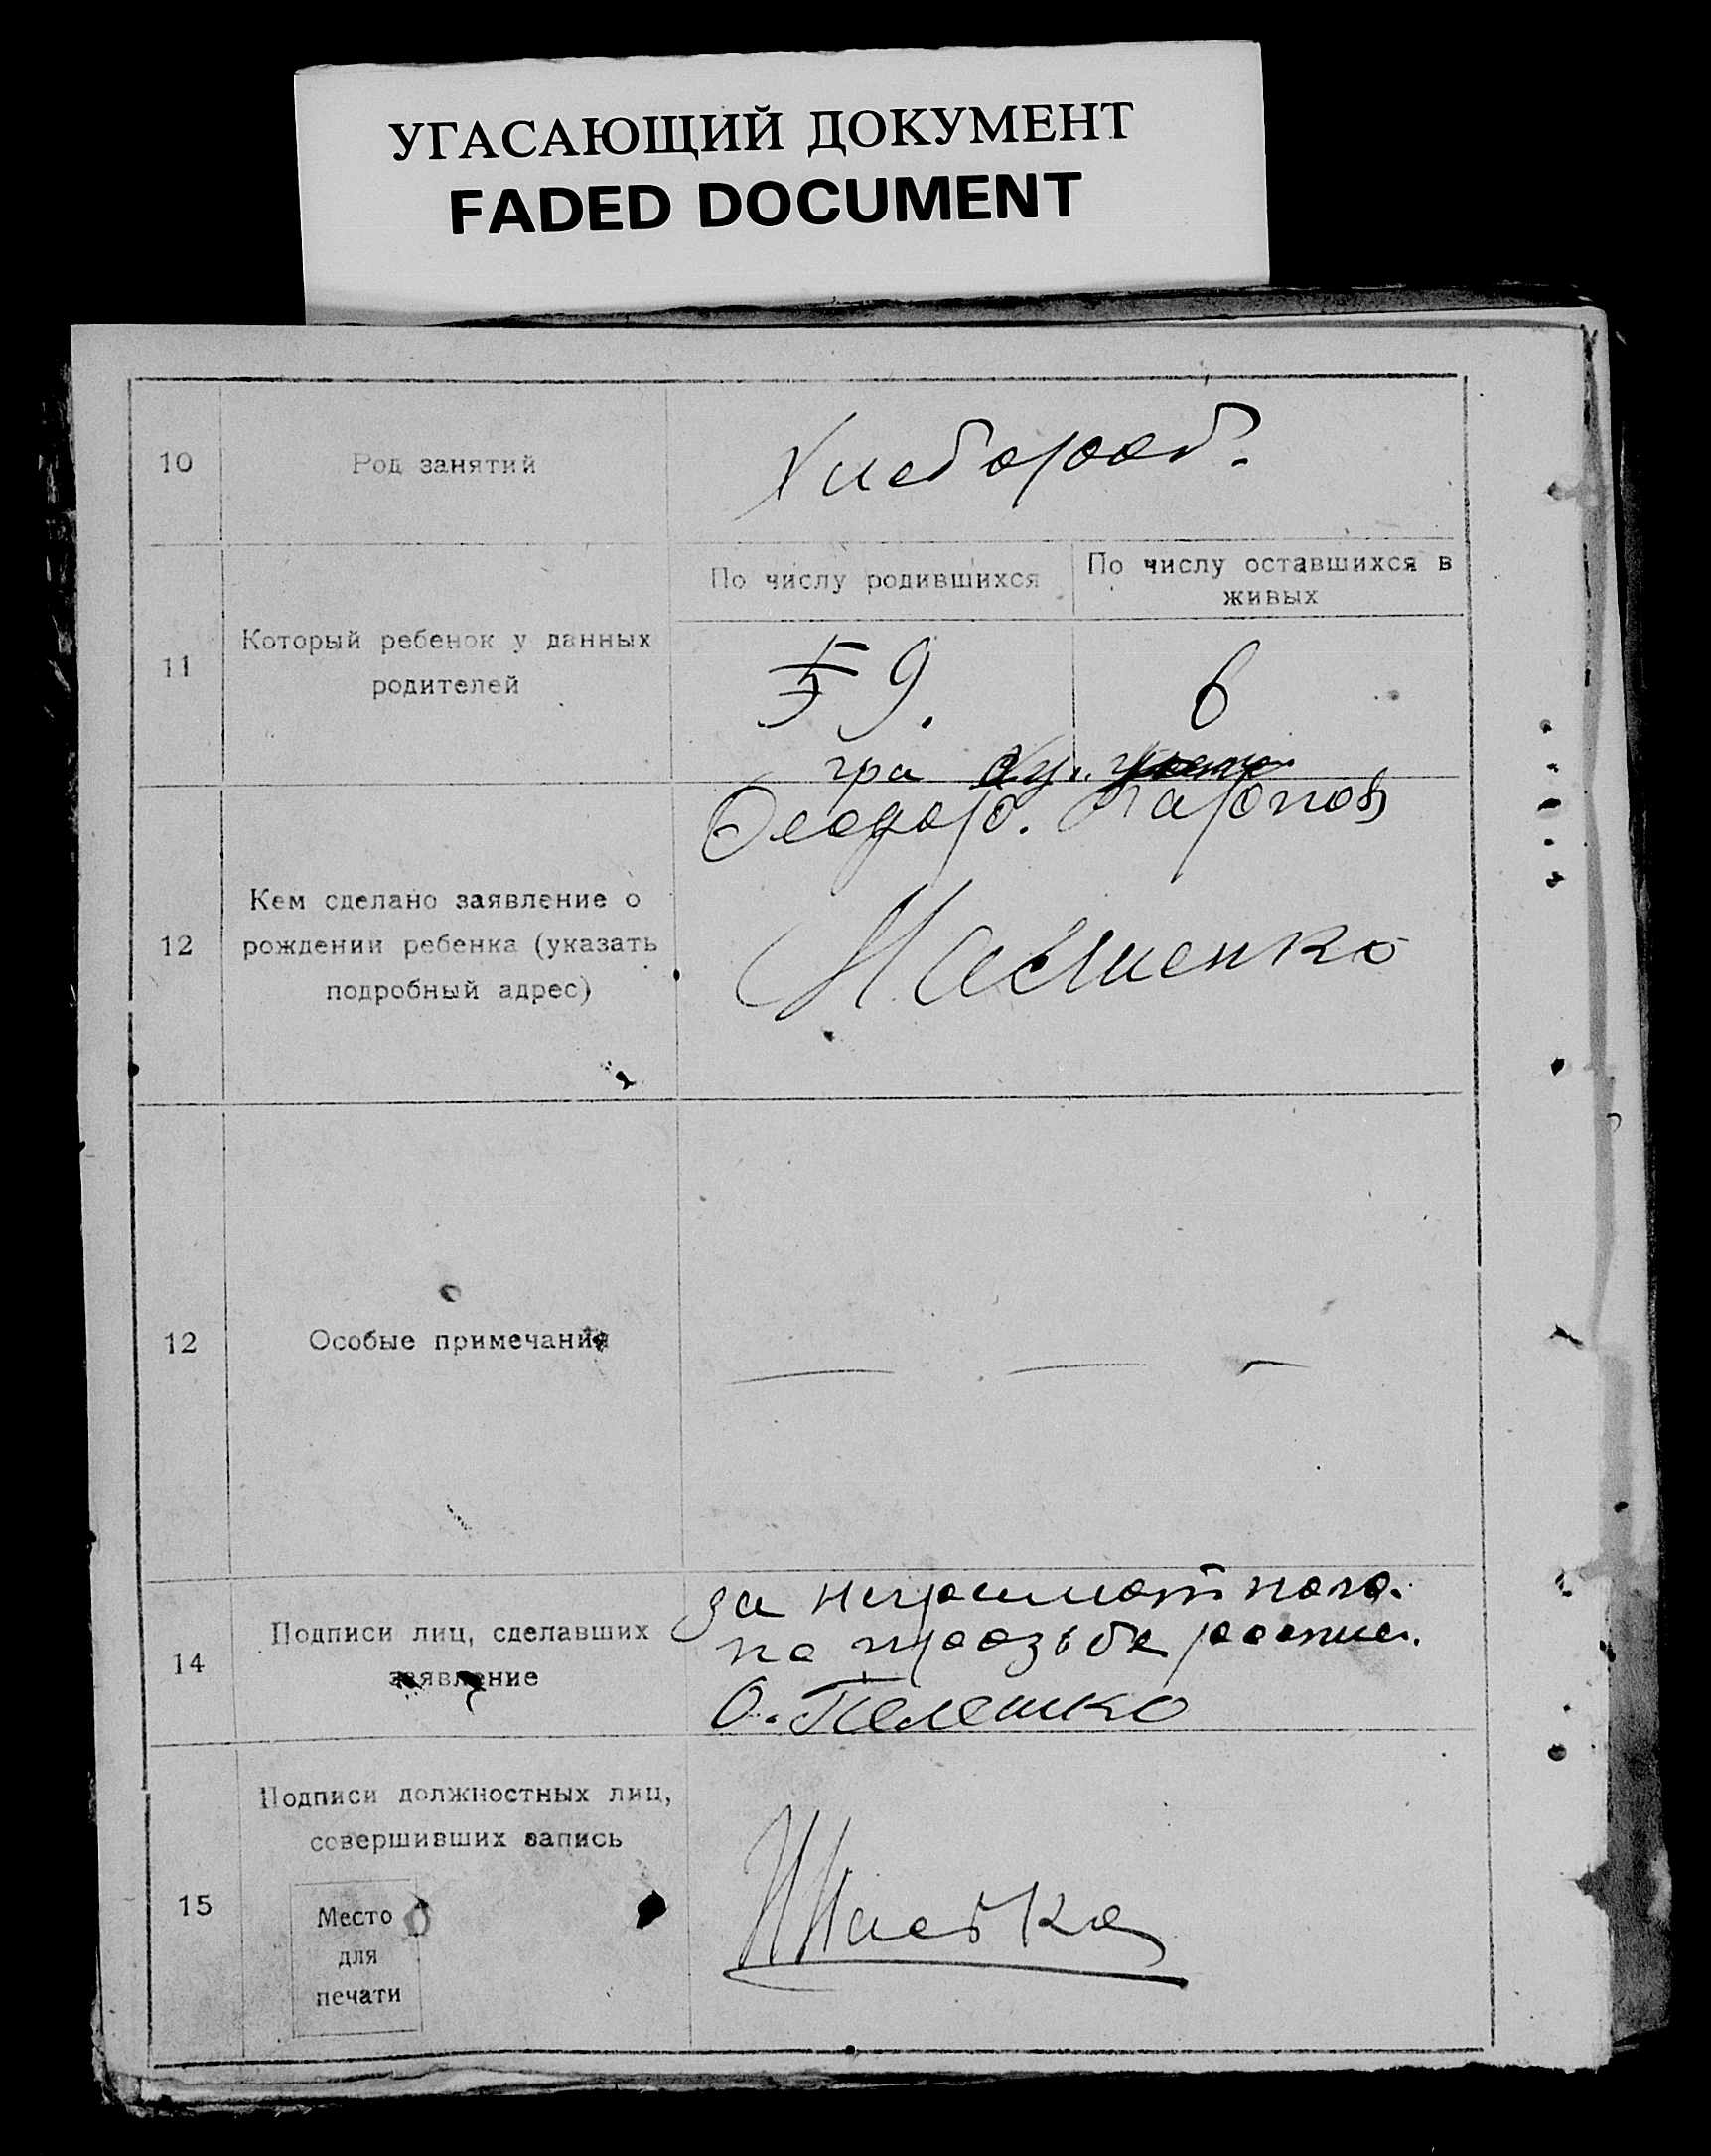 УГАСАЮЩИЙ ДОКУМЕНТ
FADED DOCUMENT
10
Род занятий
Хлебороб.
11
Который ребенок у данных
родителей
По числу родившихся
По числу оставшихся в
живых
5 9.
6
12
Кем сделано заявление о
рождении ребенка (указать
подробный адрес)
гра
12
Особые примечания
14
Подписи лиц, сделавших
заявление
за неграмотного.
по прозьбе
О. Телешко
15
Подписи должностных лиц,
совершивших запись
Место
для
печати